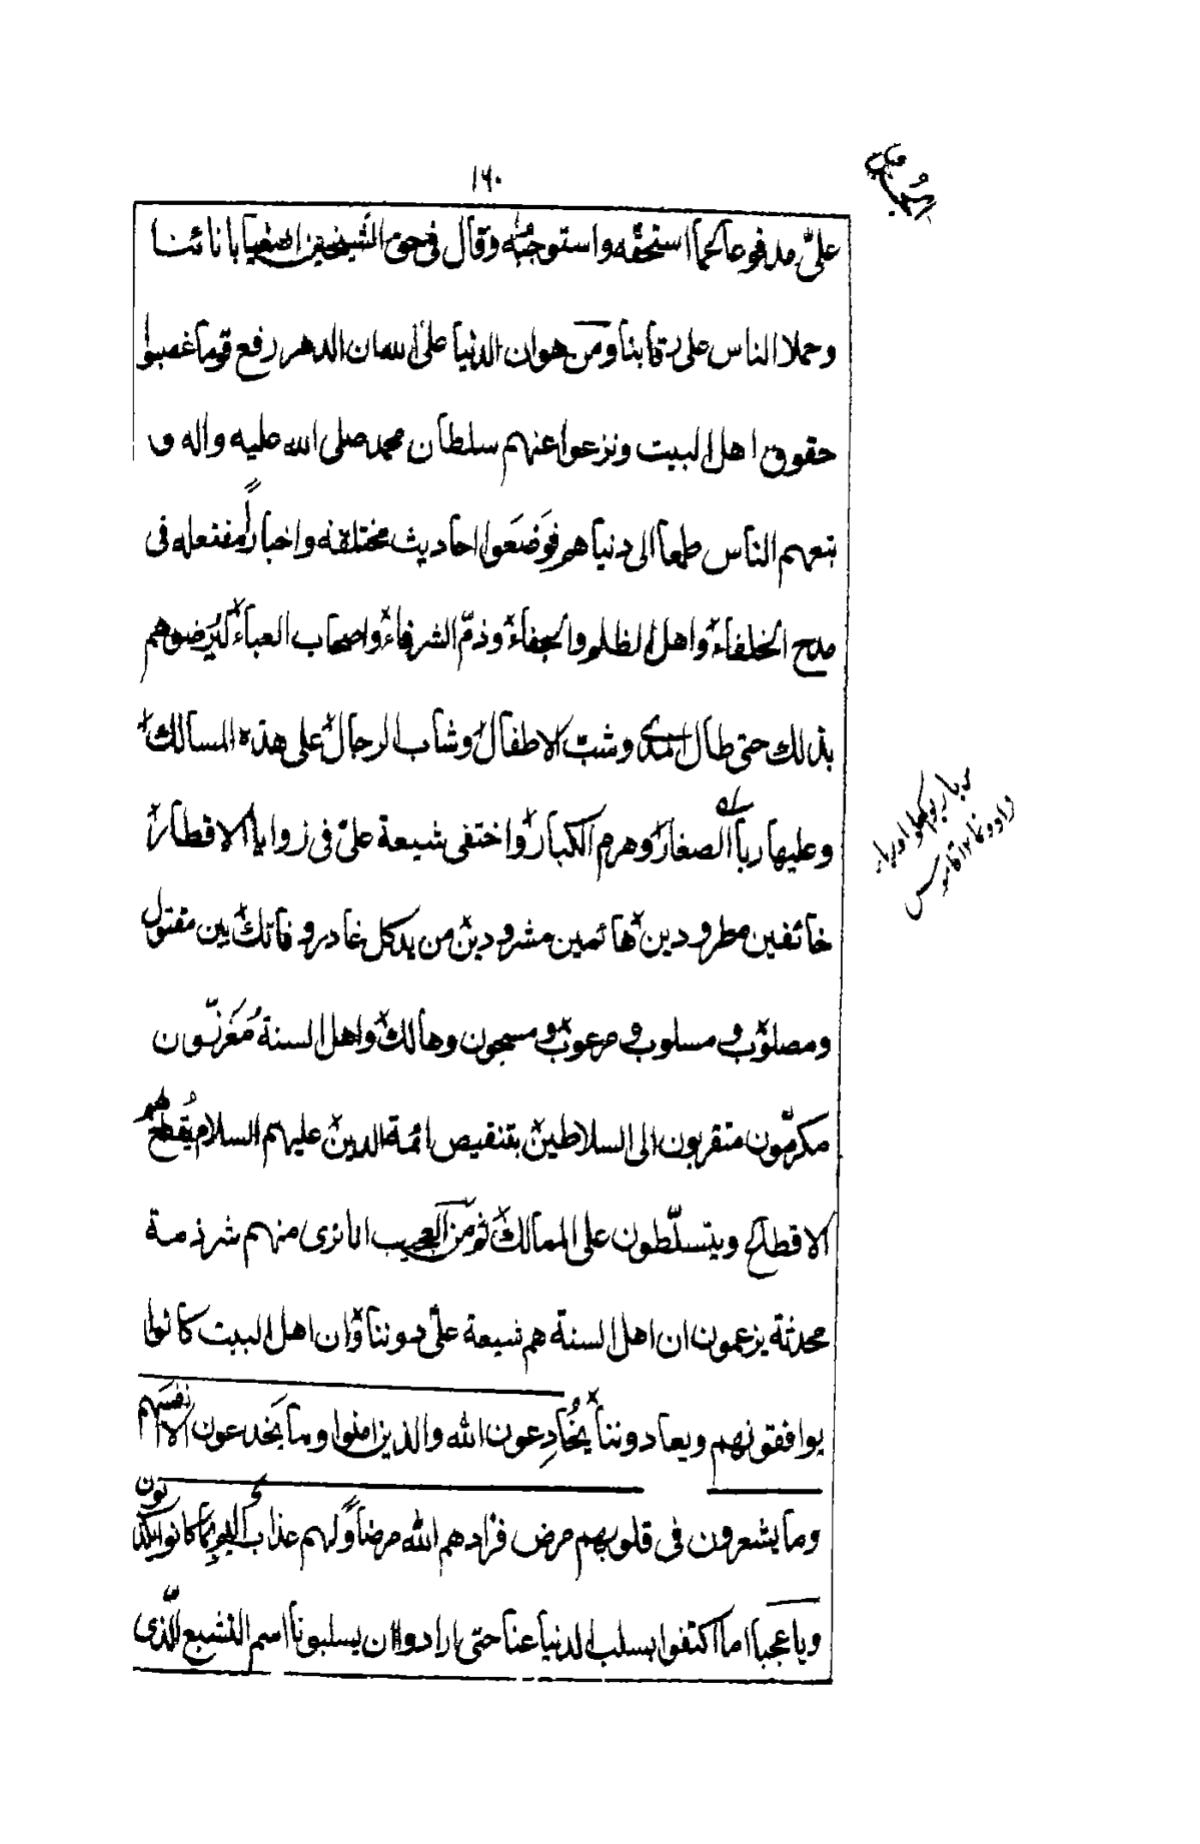 ١٦٠
علیّ مدفوعا كما استحقّه واستوجبه وقال فی حق الشیخین اصغیا بانائنا
وحملا الناس علی رقابنا ومن هوان الدنیا علی الله ان الدهر رفع قوما غصبوا
حقوق اهل البیت ونزعوا عنهم سلطان محمد صلی الله علیه واله و
تبعهم الناس طمعا الی دنیاهم فوَضَعَوا احادیث مختلقه واخباراً مفتعله فی
مدح الخلفاء واهل الظلم والجفاء وذمّ الشرفاء واصحاب العباء لیُرَضوهم
بذلك حتی طال المدی وشبّ الاطفال وشاب الرجال علی هذه المسالك
وعلیها ربا الصغار وهرم الكبار واختفی شیعة علیّ فی زوایا الاقطار
خائفین مطرودین هائمین مشرودین من ید كل غادر وفاتك بین مقتول
ومصلوب و مسلوب و مرعوب و مسجون وهالك واهل السنة مُعَزّزون
مكرّمون متقربون الی السلاطین بتنقیص ائمة الدین علیهم السلام یُقطع هم
الاقطاع ویتسلّطون علی الممالك ثم من العجیب انا نری منهم شرذمة
محدثة یزعمون ان اهل السنة هم شیعة علیّ دوننا وان اهل البیت كانوا
یوافقونهم ویعادوننا یُخادِعون الله والذین امنوا وما یَخدعون الا انفسهم
وما یشعرون فی قلوبهم مرض فزادهم الله مرضاً ولهم عذاب الیم بما كانوا یكذبون
ویا عجبا اما اكتفوا بسلب الدنیا عنا حتی ارادوا ان یسلبونا اسم التشیع الّذی